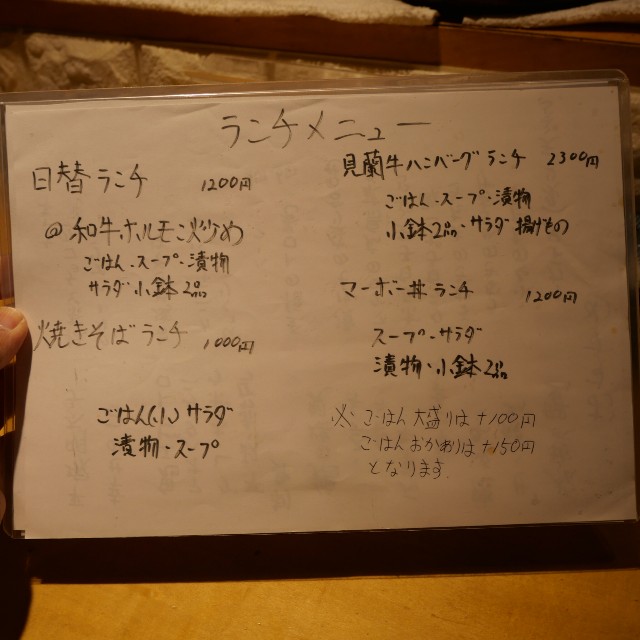 ランチメニュー
日替ランチ 1200円
@ 和牛ホルモン炒め
ごはん・スープ・漬物
サラダ・小鉢2品
焼きそばランチ 1000円
ごはん(小) サラダ
漬物・スープ
見蘭牛ハンバーグランチ 2300円
ごはん・スープ・漬物
小鉢2品・サラダ 揚げもの
マーボー丼ランチ 1200円
スープ・サラダ
漬物・小鉢2品
※ ごはん大盛りは+100円
ごはんおかわりは+150円
となります。